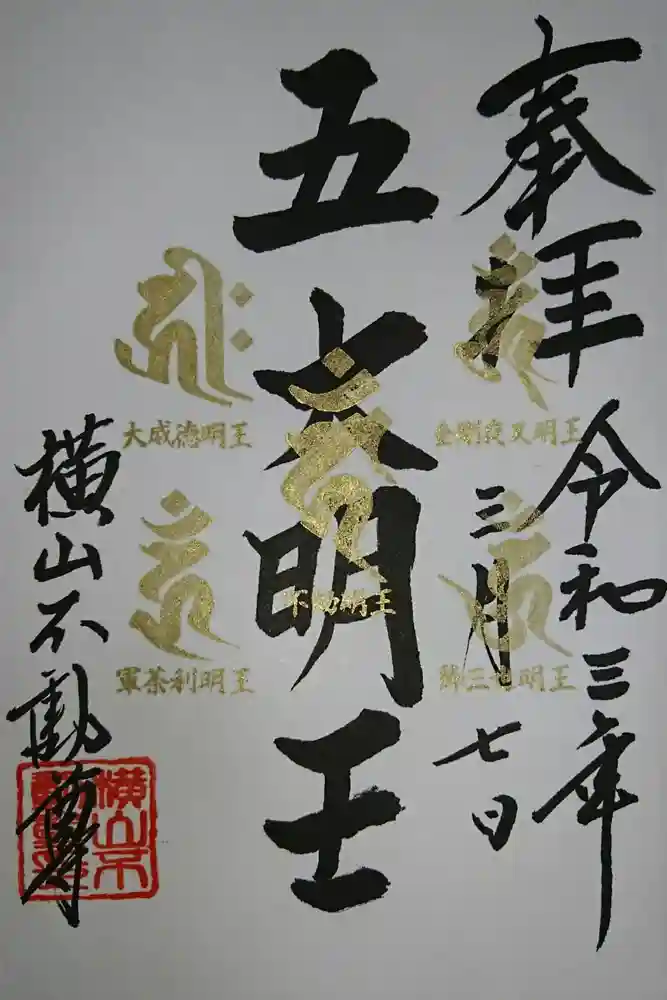 奉拝
令和三年
三月
七日
五大明王
横山不動尊
金剛夜叉明王
降三世明王
不動明王
大威徳明王
軍荼利明王